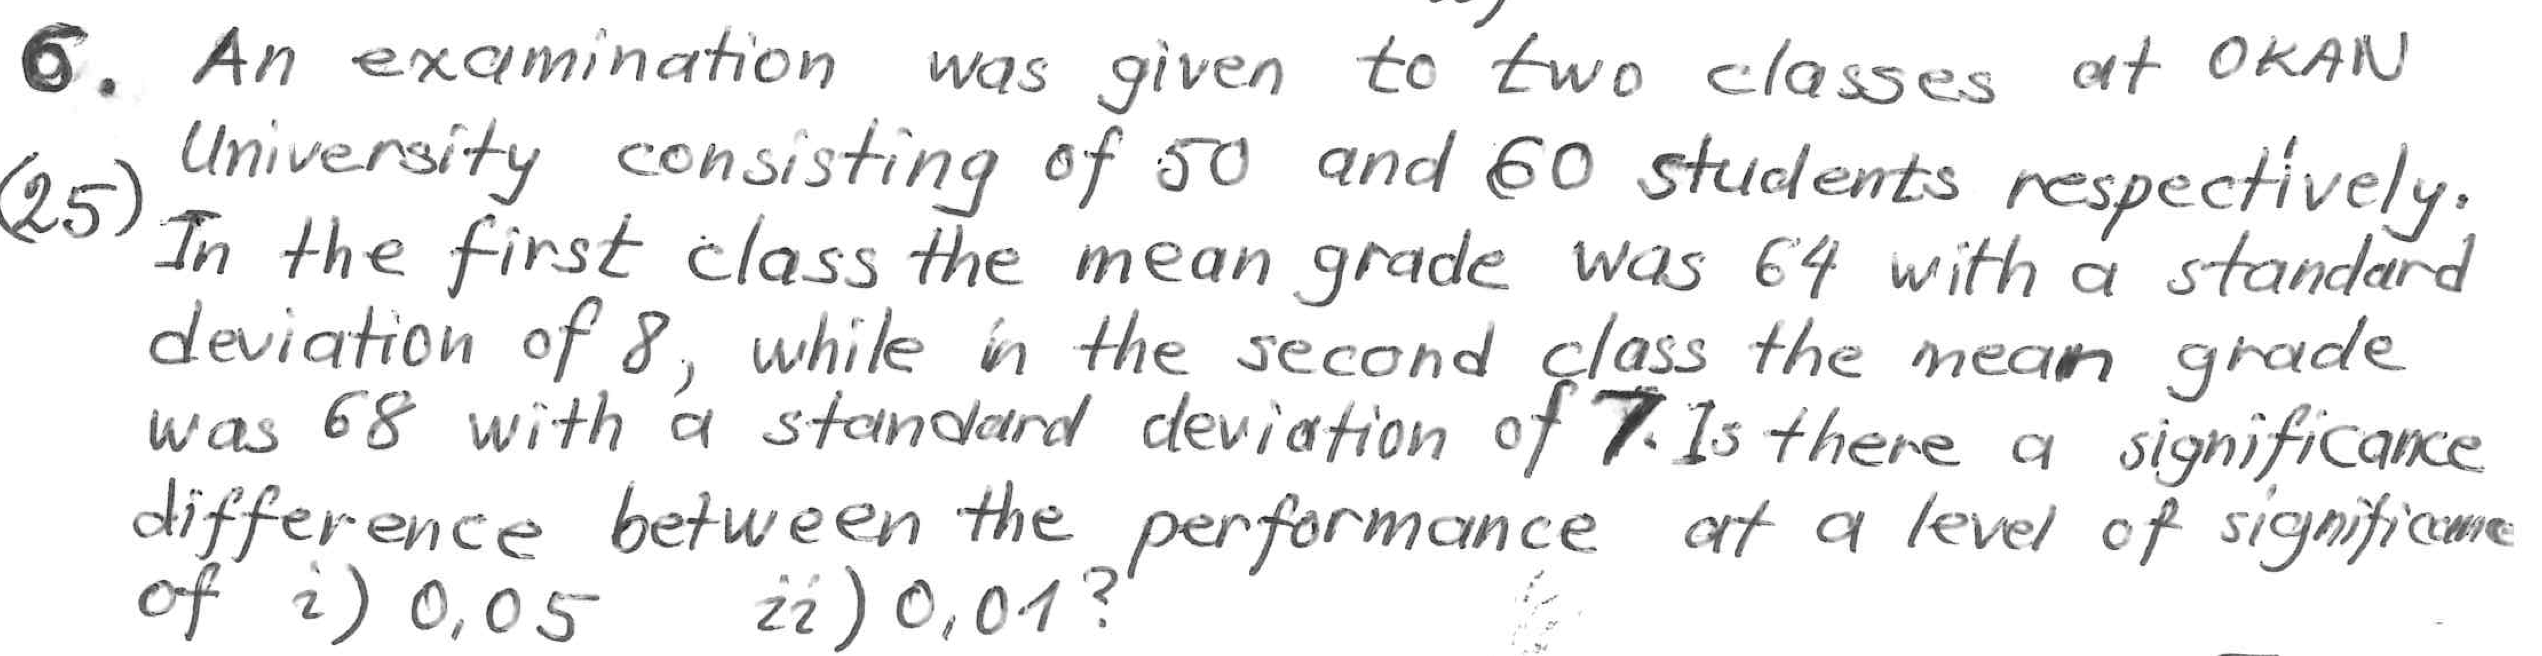 6. An examination was given to two classes at OKAN
University consisting of 50 and 60 students respectively.
(25)
In the first class the mean grade was 64 with a standard
deviation of 8, while in the second class the mean grade
was 68 with a standard deviation of 7. Is there a significance
difference between the performance at a level of significance
of i) 0,05 ii) 0,01?